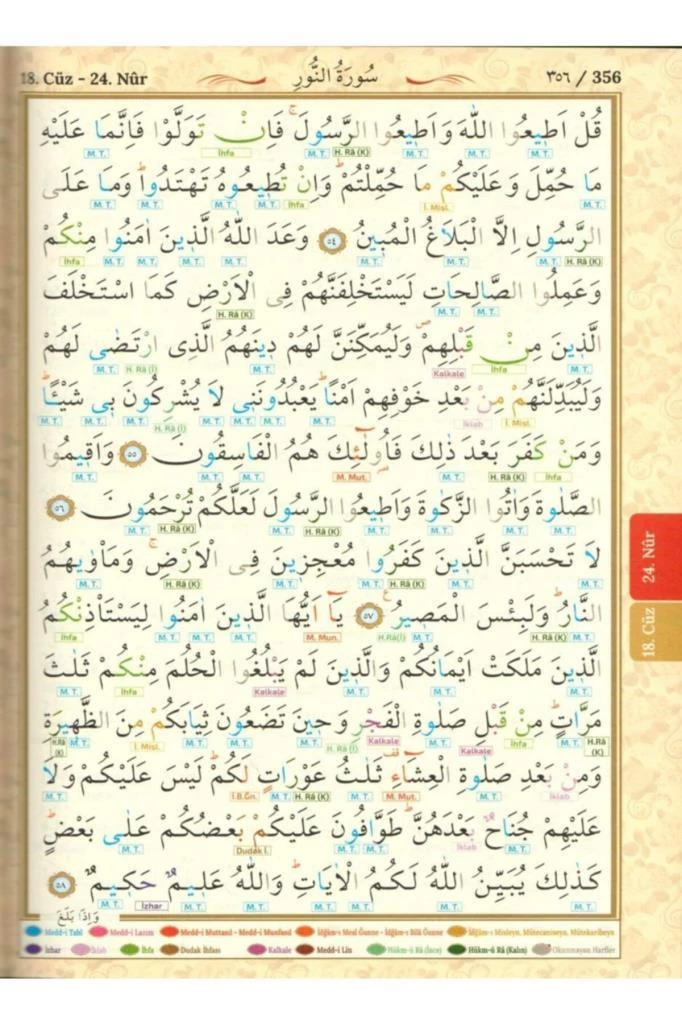 18. Cüz - 24. Nûr
سُورَةُ النُّورِ
٣٥٦ / 356
قُلْ اَط۪يعُوا اللّٰهَ وَاَط۪يعُوا الرَّسُولَۚ فَاِنْ تَوَلَّوْا فَاِنَّمَا عَلَيْهِ
مَا حُمِّلَ وَعَلَيْكُمْ مَا حُمِّلْتُمْۜ وَاِنْ تُط۪يعُوهُ تَهْتَدُواۜ وَمَا عَلَى
الرَّسُولِ اِلَّا الْبَلَاغُ الْمُب۪ينُ ﴿٥٤﴾ وَعَدَ اللّٰهُ الَّذ۪ينَ اٰمَنُوا مِنْكُمْ
وَعَمِلُوا الصَّالِحَاتِ لَيَسْتَخْلِفَنَّهُمْ فِي الْاَرْضِ كَمَا اسْتَخْلَفَ
الَّذ۪ينَ مِنْ قَبْلِهِمْۖ وَلَيُمَكِّنَنَّ لَهُمْ د۪ينَهُمُ الَّذِي ارْتَضٰى لَهُمْ
وَلَيُبَدِّلَنَّهُمْ مِنْ بَعْدِ خَوْفِهِمْ اَمْنًاۜ يَعْبُدُونَن۪ي لَا يُشْرِكُونَ ب۪ي شَيْـًٔاۜ
وَمَنْ كَفَرَ بَعْدَ ذٰلِكَ فَاُو۬لٰٓئِكَ هُمُ الْفَاسِقُونَ ﴿٥٥﴾ وَاَق۪يمُوا
الصَّلٰوةَ وَاٰتُوا الزَّكٰوةَ وَاَط۪يعُوا الرَّسُولَ لَعَلَّكُمْ تُرْحَمُونَ ﴿٥٦﴾
لَا تَحْسَبَنَّ الَّذ۪ينَ كَفَرُوا مُعْجِز۪ينَ فِي الْاَرْضِۚ وَمَأْوٰيهُمُ
النَّارُۜ وَلَبِئْسَ الْمَص۪يرُ۟ ﴿٥٧﴾ يَٓا اَيُّهَا الَّذ۪ينَ اٰمَنُوا لِيَسْتَأْذِنْكُمُ
الَّذ۪ينَ مَلَكَتْ اَيْمَانُكُمْ وَالَّذ۪ينَ لَمْ يَبْلُغُوا الْحُلُمَ مِنْكُمْ ثَلٰثَ
مَرَّاتٍۜ مِنْ قَبْلِ صَلٰوةِ الْفَجْرِ وَح۪ينَ تَضَعُونَ ثِيَابَكُمْ مِنَ الظَّه۪يرَةِ
وَمِنْ بَعْدِ صَلٰوةِ الْعِشَٓاءِ۠ ثَلٰثُ عَوْرَاتٍ لَكُمْۜ لَيْسَ عَلَيْكُمْ وَلَا
عَلَيْهِمْ جُنَاحٌ بَعْدَهُنَّۜ طَوَّافُونَ عَلَيْكُمْ بَعْضُكُمْ عَلٰى بَعْضٍۜ
كَذٰلِكَ يُبَيِّنُ اللّٰهُ لَكُمُ الْاٰيَاتِۜ وَاللّٰهُ عَل۪يمٌ حَك۪يمٌ ﴿٥٨﴾
وَاِذَا بَلَغَ
Medd-i Tabî Medd-i Lazım Medd-i Muttasıl - Medd-i Munfasıl İdğam-ı Meal Ğunne - İdğam-ı Bilâ Ğunne İdğam-ı Misleyn, Mütecaniseyn, Mütekaribeyn
İzhar İklab İhfa Dudak İhfası Kalkale Medd-i Lin Hükm-ü Râ (İnce) Hükm-ü Râ (Kalın) Okunmayan Harfler
24. Nûr
18. Cüz